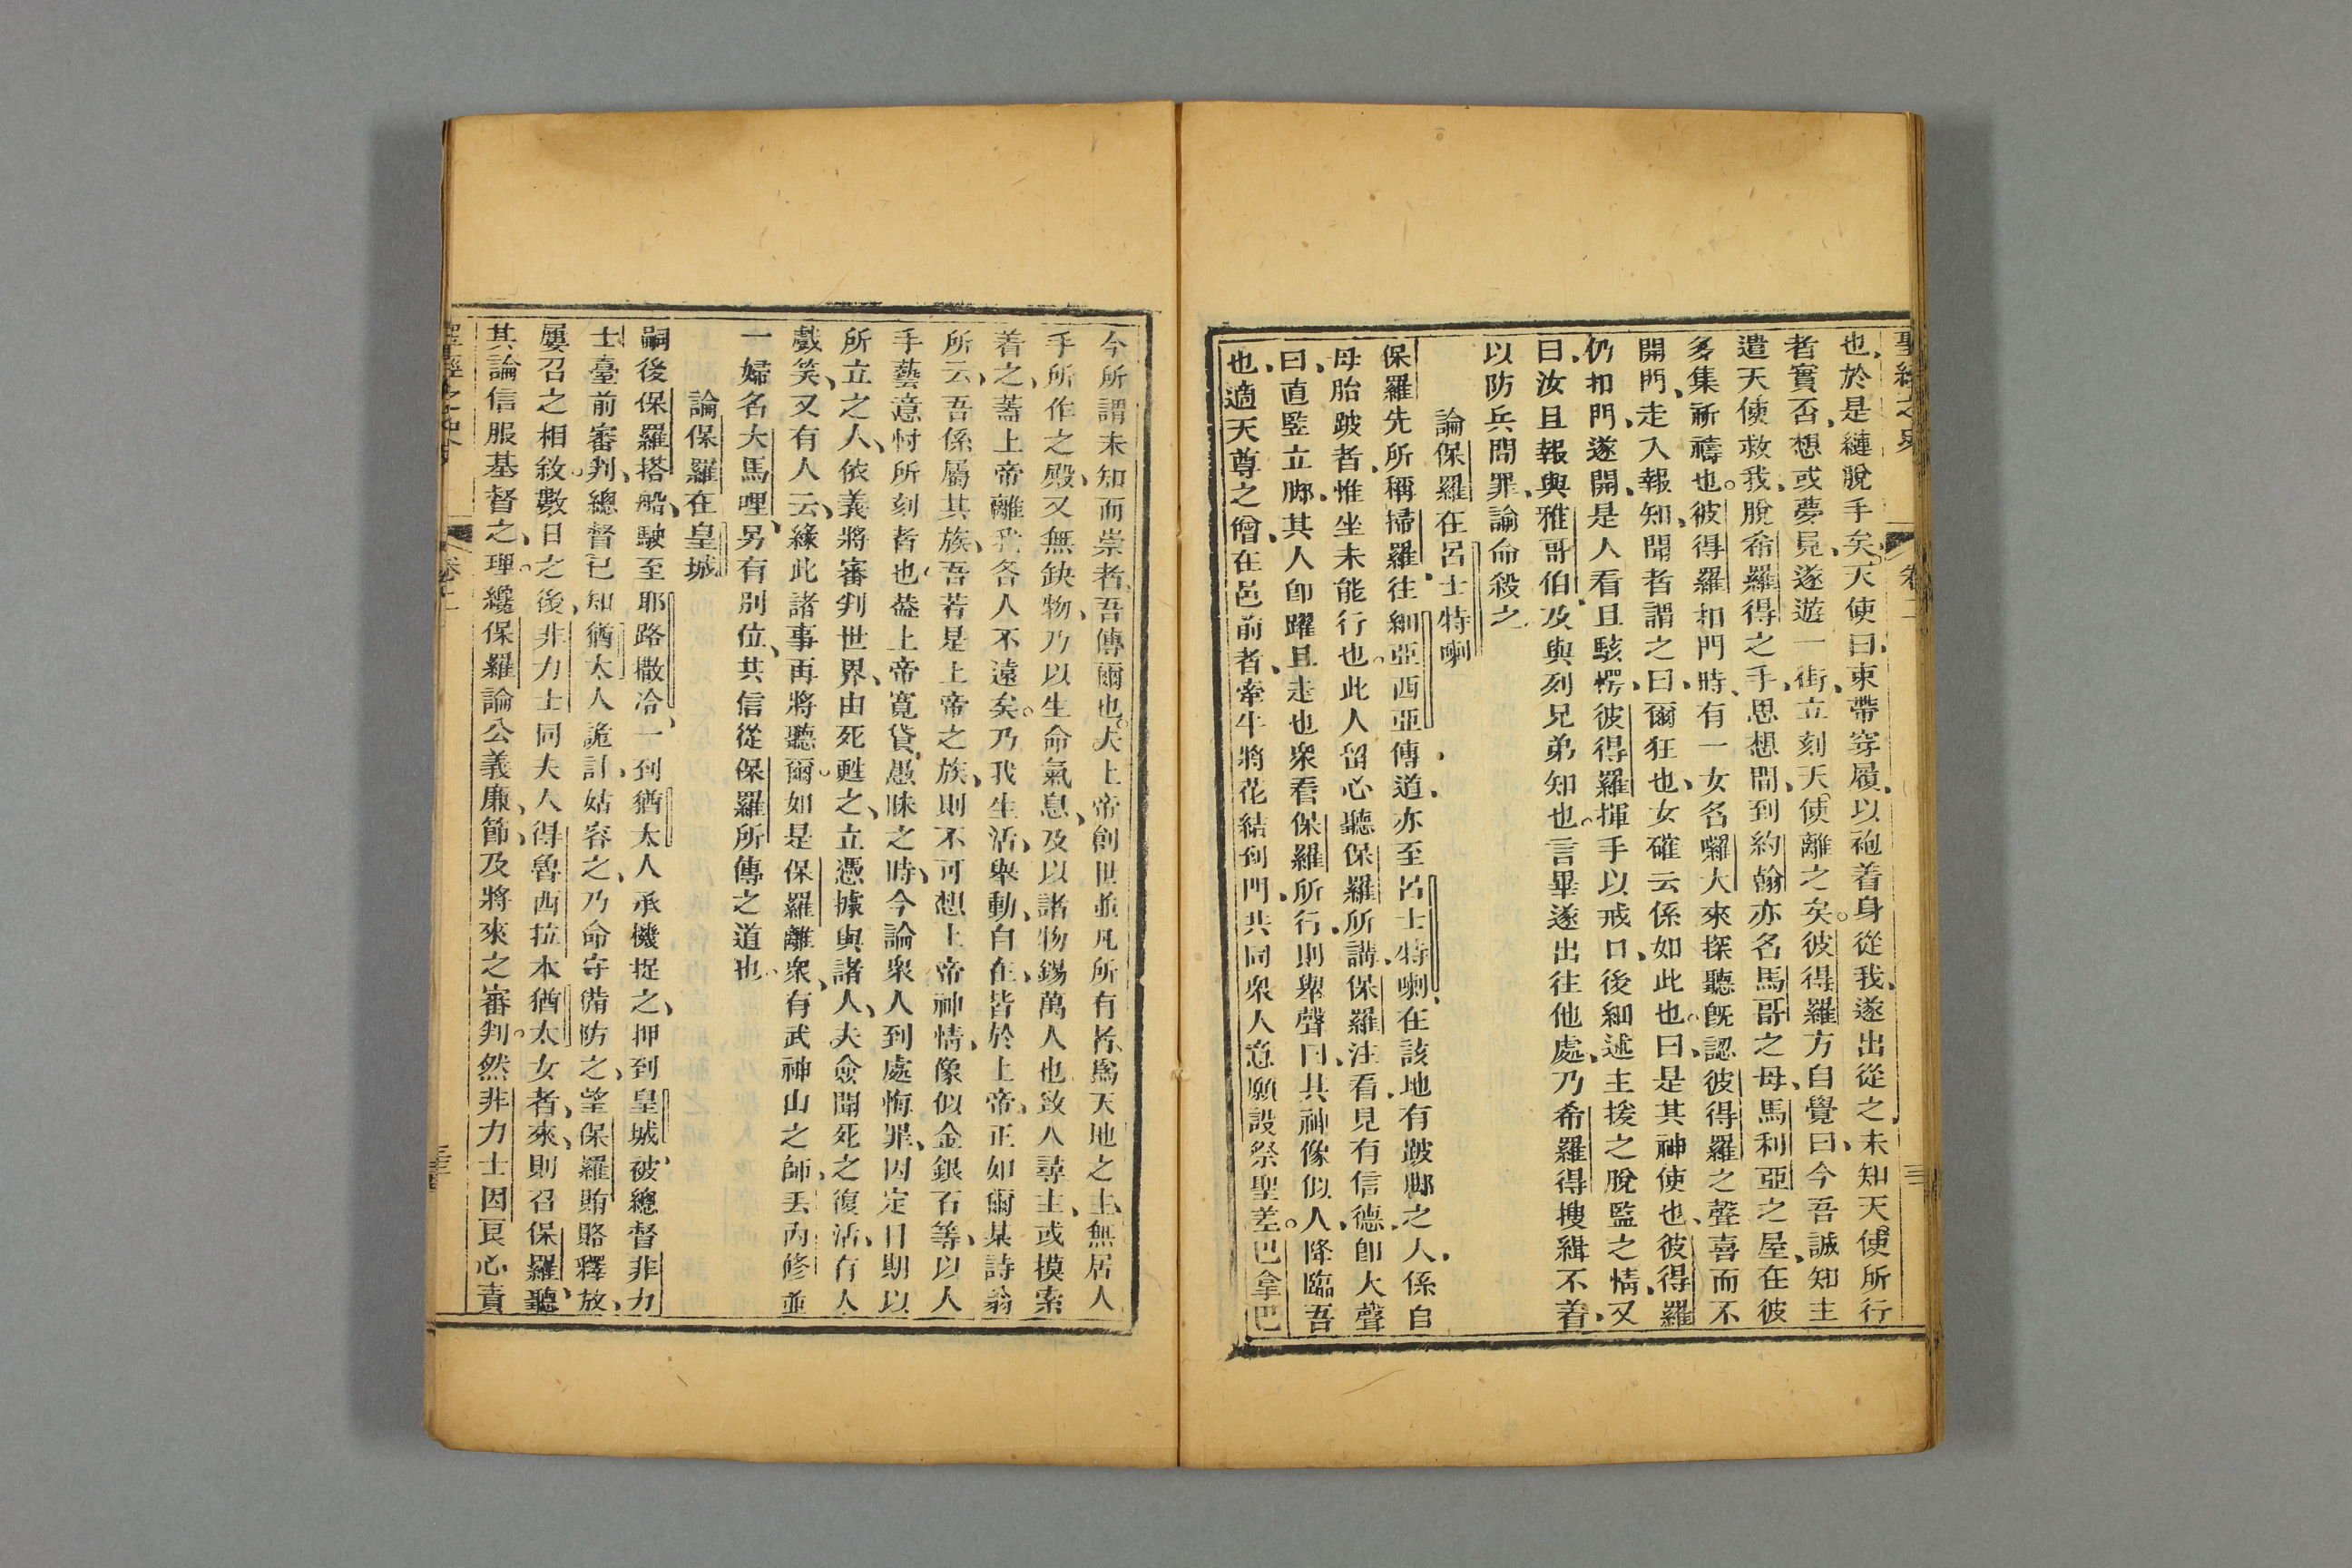 聖經之史 卷二
也、於是縺脫手矣。天使曰、束帶穿履、以袍着身從我、遂出從之、未知天使所行
者實否、想或夢見、遂遊一街、立刻天使離之矣。彼得羅方自覺曰、今吾誠知主
遣天使救我、脫希羅得之手、思想間、到約翰亦名馬哥之母、馬利亞之屋、在彼
多集祈禱也。彼得羅扣門時、有一女名囉大來探聽、旣認彼得羅之聲、喜而不
開門、走入報知、開者謂之曰、爾狂也、女確云係如此也。曰、是其神使也、彼得羅
仍扣門、遂開、是人看且駭愕、彼得羅揮手以戒口、後細述主援之脫監之情、又
曰、汝且報與雅哥伯、及與列兄弟知也。言畢遂出往他處、乃希羅得搜緝不着、
以防兵問罪、諭命殺之
論保羅在呂士特喇
保羅先所稱掃羅、往細亞西亞傳道、亦至呂士特喇、在該地有跛脚之人、係自
母胎跛者、惟坐未能行也。此人留心聽保羅所講、保羅注看、見有信德、卽大聲
曰、直竪立脚、其人卽躍且走也、衆看保羅所行、則舉聲曰、其神像似人、降臨吾
也、適天尊之僧、在邑前者、牽牛將花結到門、共同衆人意願設祭聖差。巴拿巴
今所謂未知而崇者、吾傳爾也。夫上帝創世並凡所有者、爲天地之主、無居人
手所作之殿、又無缺物、乃以生命氣息、及以諸物錫萬人也、致人尋主、或摸索
着之、蓋上帝離我各人不遠矣。乃我生活、舉動、自在、皆於上帝、正如爾某詩翁
所云、吾係屬其族、吾若是上帝之族、則不可想上帝神情、像似金銀石等、以人
手藝意忖所刻者也。葢上帝寬貸、愚昧之時、今論衆人到處悔罪、因定日期、以
所立之人、依義將審判世界、由死甦之、立憑據與諸人、夫僉聞死之復活、有人
戲笑、又有人云、緣此諸事再將聽爾。如是保羅離衆、有武神山之師、丟內修並
一婦名大馬哩、另有別位、共信從保羅所傳之道也。
論保羅在皇城
嗣後保羅搭船、駛至耶路撒冷、一到猶太人承機捉之、押到皇城、被總督非力
士臺前審判、總督已知猶太人詭計、姑容之、乃命守備防之、望保羅賄賂釋放、
屢召之相敘。數日之後、非力士同夫人得魯西拉本猶太女者、來、則召保羅、聽
其論信服基督之理、纔保羅論公義、廉、節、及將來之審判。然非力士因良心責